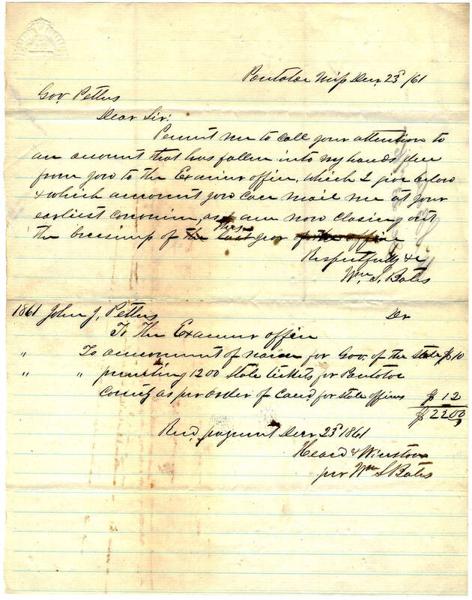 Pontotoc Miss Dec. 23d /61
Gov. Pettus
Dear Sir:
Permit me to call your attention to
an account that has fallen into my hands due
from you to the Examiner office, which I give below
& which account you can mail me at your
earliest convenien, as I am now closing out
the business of the last year
Respectfully &c
Wm S. Bates
1861 John J. Pettus Dr
To The Examiner office
" To announcement of name for Gov. of the State $10
" " printing 1200 State tickets for Pontotoc
County as per order of Cand. for state offices $12
$2200
Recd. payment Decr 23d 1861
Heard & Winston
per Wm S Bates